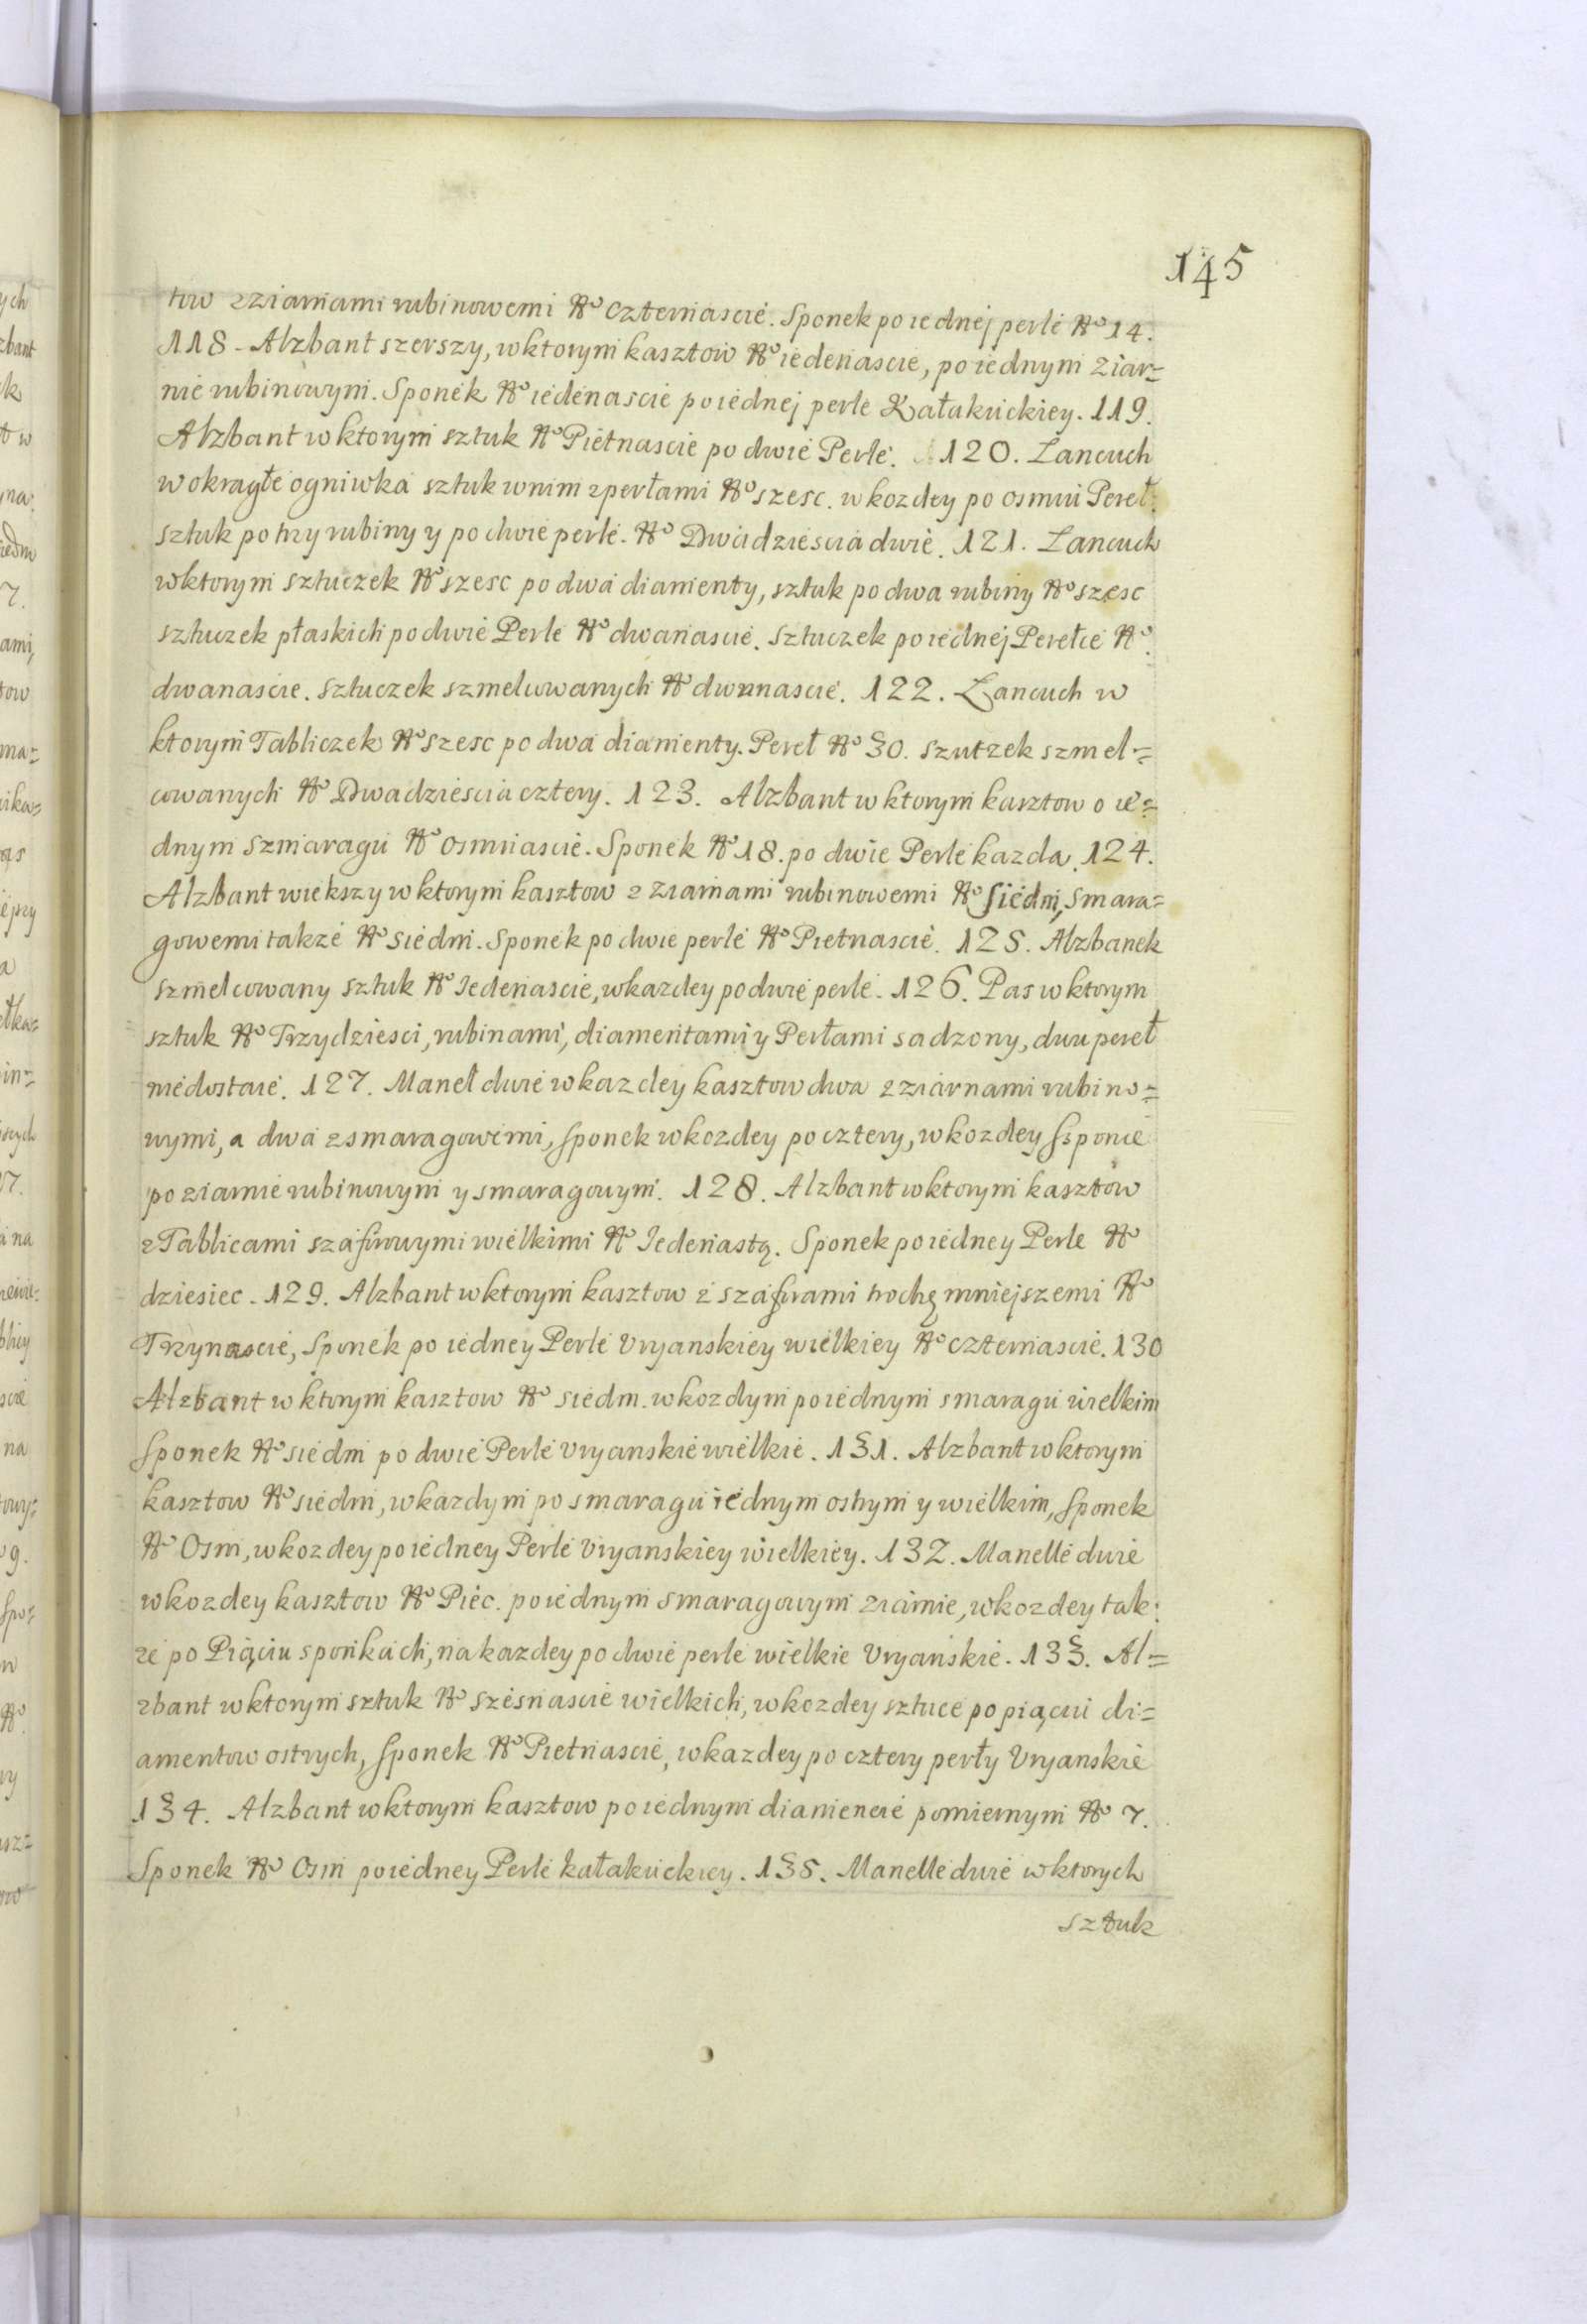 145
tow z ziarnami rubinowemi No czternascie. Sponek po iednej perle No 14.
118 - Alzbant szerszy, w ktorym kasztow No iedenascie, po iednym ziar=
nie rubinowym. Sponek No iedenascie po iednej perle Kałakuckiey. 119.
Alzbant w ktorym sztuk No Pietnascie po dwie Perle. 120. Lancuch
w okragłe ogniwka sztuk w nim z perłami No szesc. w kozdey po osmiu Pereł.
sztuk po trzy rubiny y po dwie perle. No Dwadziescia dwie. 121. Lancuch
w ktorym sztuczek No szesc po dwa diamenty, sztuk po dwa rubiny No szesc
sztuczek płaskich po dwie Perle No dwanascie. sztuczek po iednej Perełce No.
dwanascie. sztuczek szmelcowanych No dwanascie. 122. Lancuch w
ktorym Tabliczek No szesc po dwa diamenty. Pereł No 30. szutzek szmel=
cowanych No Dwadziescia cztery. 123. Alzbant w ktorym kasztow o ie=
dnym szmaragu No osmnascie. Sponek No 18. po dwie Perle kazda. 124.
Alzbant wiekszy w ktorym kasztow z ziarnami rubinowemi No siedm, smara=
gowemi takze No siedm. Sponek po dwie perle No Pietnascie. 125. Alzbanek
szmelcowany sztuk No Iedenascie, w kazdey po dwie perle. 126. Pas w ktorym
sztuk No Trzydziesci, rubinami, diamentami y Perłami sadzony, dwu pereł
niedostaie. 127. Maneł dwie w kazdey kasztow dwa z ziarnami rubino=
wymi, a dwa z smaragowemi, sponek w kozdey po cztery, w kozdey ssponie
po ziarnie rubinowym y smaragowym. 128. Alzbant w ktorym kasztow
z Tablicami szafirowymi wielkimi No Iedenastę. Sponek po iedney Perle No
dziesiec. 129. Alzbant w ktorym kasztow z szafirami trochę mniejszemi No
Trzynascie, Sponek po iedney Perle Vryanskiey wielkiey No czternascie. 130
Alzbant w ktorym kasztow No siedm. w kozdym po iednym smaragu wielkim
Sponek No siedm po dwie Perle Vryanskie wielkie. 131. Alzbant w ktorym
kasztow No siedm, w kazdym po smaragu iednym ostrym y wielkim, Sponek
No Osm, w kozdey po iedney Perle Vryanskiey wielkiey. 132. Manelle dwie
w kozdey kasztow No Piec. po iednym smaragowym ziarnie, w kozdey tak:
ze po Piąciu sponkach, na kazdey po dwie perle wielkie Vryanskie. 133. Al=
zbant w ktorym sztuk No szesnascie wielkich, w kozdey sztuce po piąciu di=
amentow ostrych, Sponek No Pietnascie, w kazdey po cztery perły Vryanskie
134. Alzbant w ktorym kasztow po iednym diamencie pomiernym No 7.
Sponek No Osm po iedney Perle kałakuckiey. 135. Manelle dwie w ktorych
sztuk